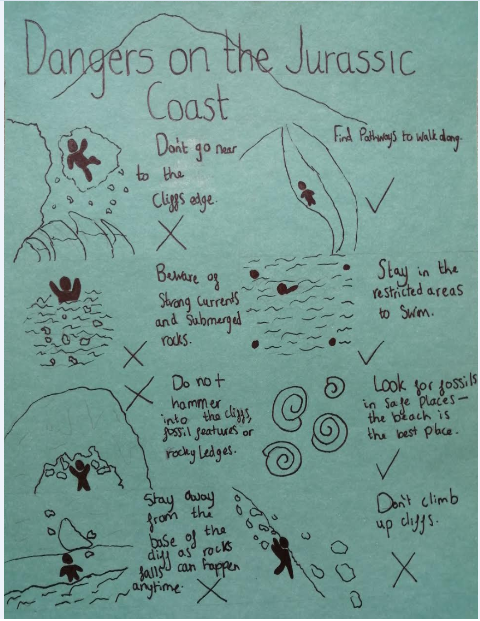 Dangers on the Jurassic
Coast
Don't go near
to the
Cliffs edge.
Find Pathways to walk along.
Beware of
Strong currents
and Submerged
rocks.
Stay in the
restricted areas
to Swim.
Do not
hammer
into the cliffs,
fossil features or
rocky ledges.
Look for fossils
in safe places—
the beach is
the best place.
Stay away
from the
base of the
cliff as rocks
falls can happen
anytime.
Don't climb
up cliffs.